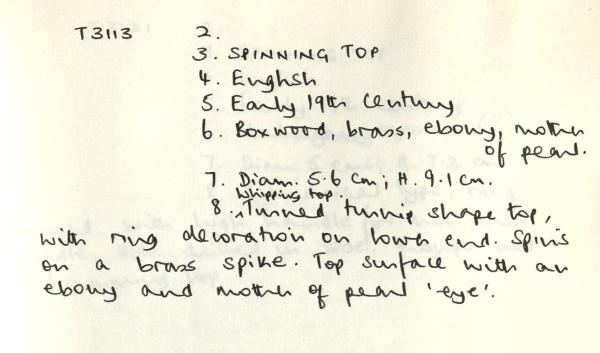 T3113 2.
3. SPINNING TOP
4. English
5. Early 19th Century
6. Boxwood, brass, ebony, mother
of pearl.
7. Diam. 5.6 cm; H. 9.1 cm.
Whipping top.
8. Turned turnip shape top,
with ring decoration on lower end. Spins
on a brass spike. Top surface with an
ebony and mother of pearl 'eye'.